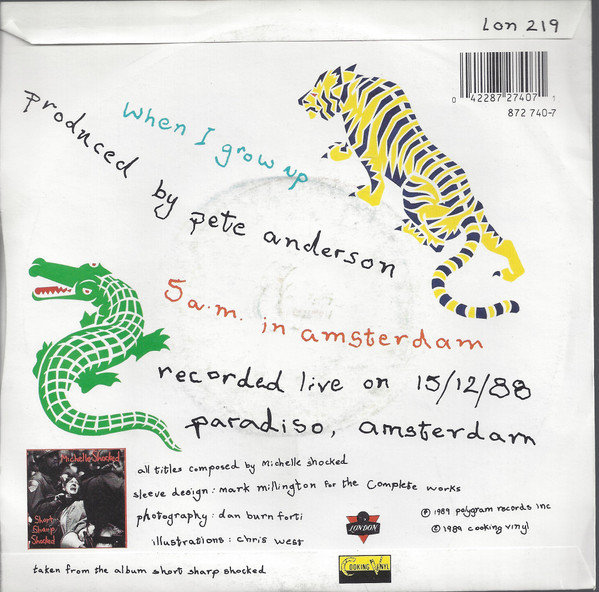 Lon 219
0 42287 27407 1
872 740-7
when I grow up
produced by pete anderson
5 a.m. in amsterdam
recorded live on 15/12/88
paradiso, amsterdam
Michelle Shocked
Short
Sharp
Shocked
all titles composed by Michelle Shocked
sleeve design: mark millington for the Complete works
photography: dan burn forti
illustrations: chris west
LONDON
℗ 1989 polygram records inc
© 1989 cooking vinyl
taken from the album short sharp shocked
COOKING VINYL